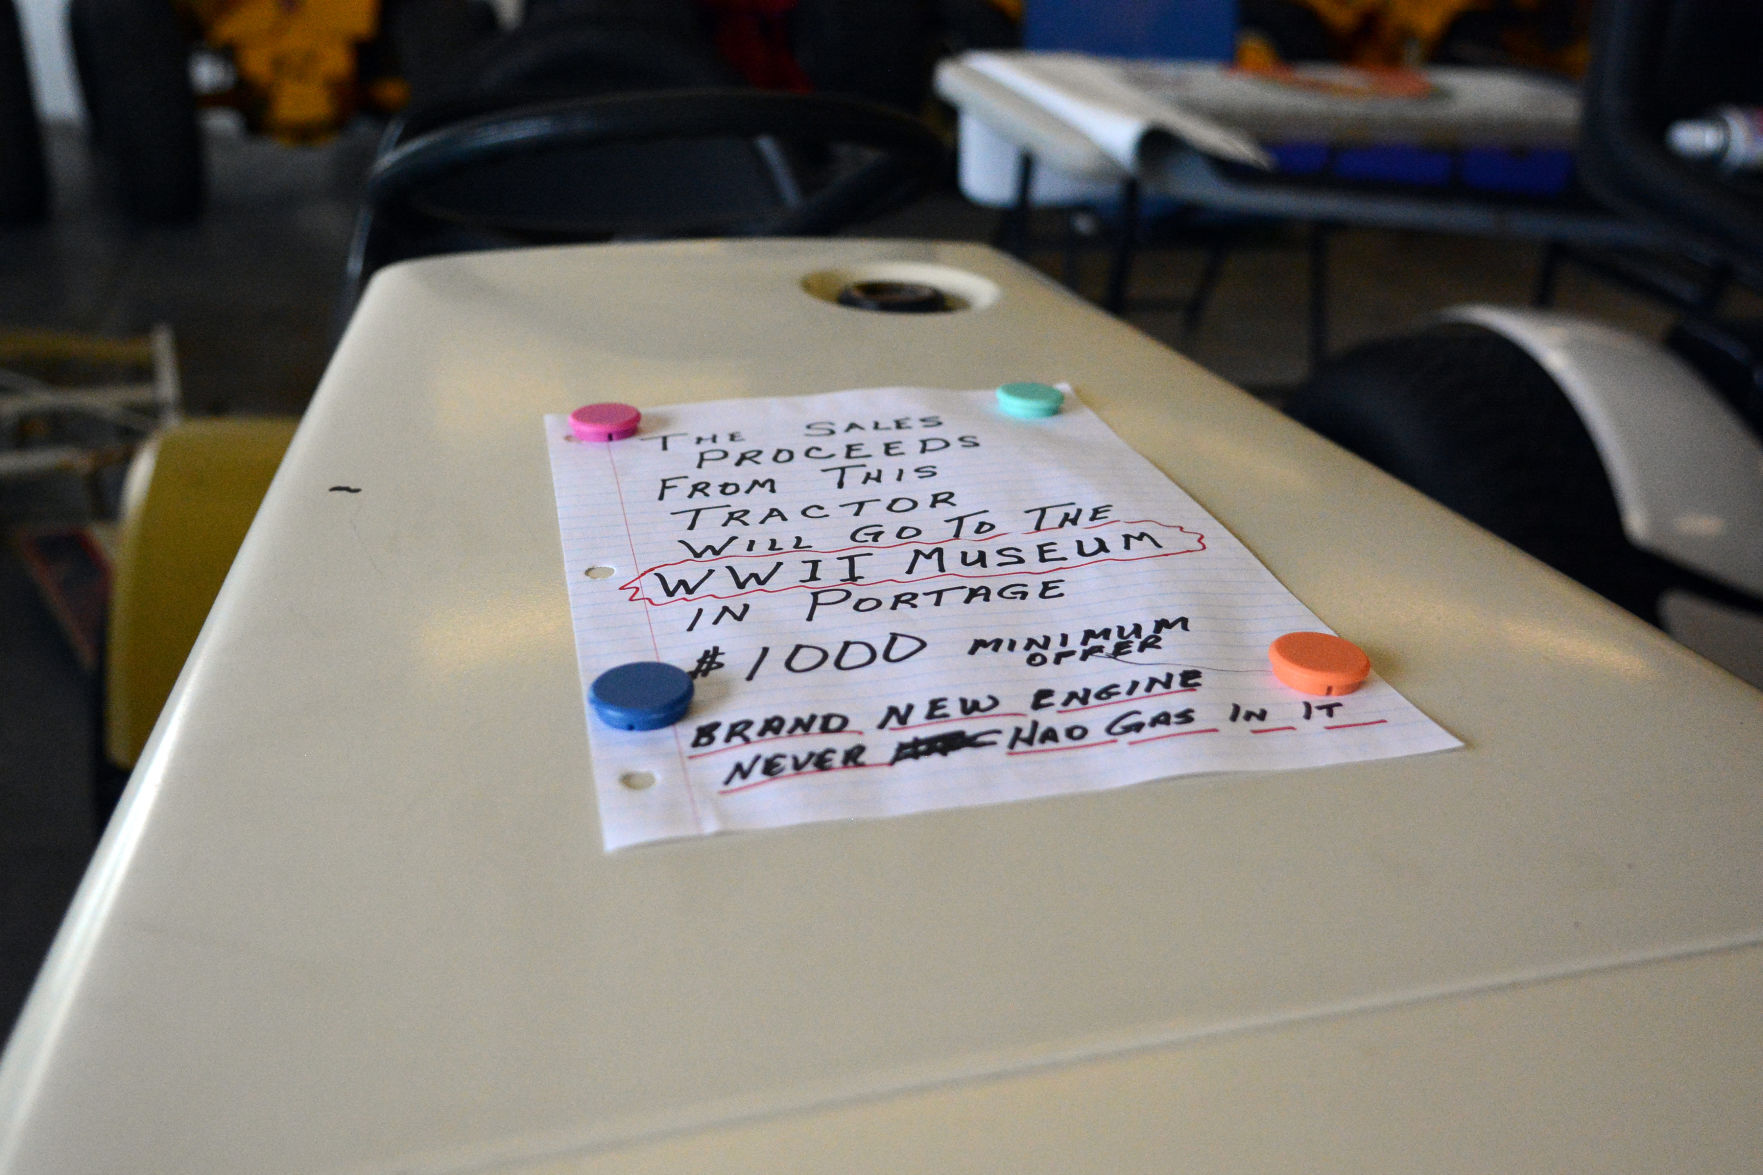 THE SALES
PROCEEDS
FROM THIS
TRACTOR
WILL GO TO THE
WWII MUSEUM
IN PORTAGE
$1000 MINIMUM
OFFER
BRAND NEW ENGINE
NEVER HAD GAS IN IT